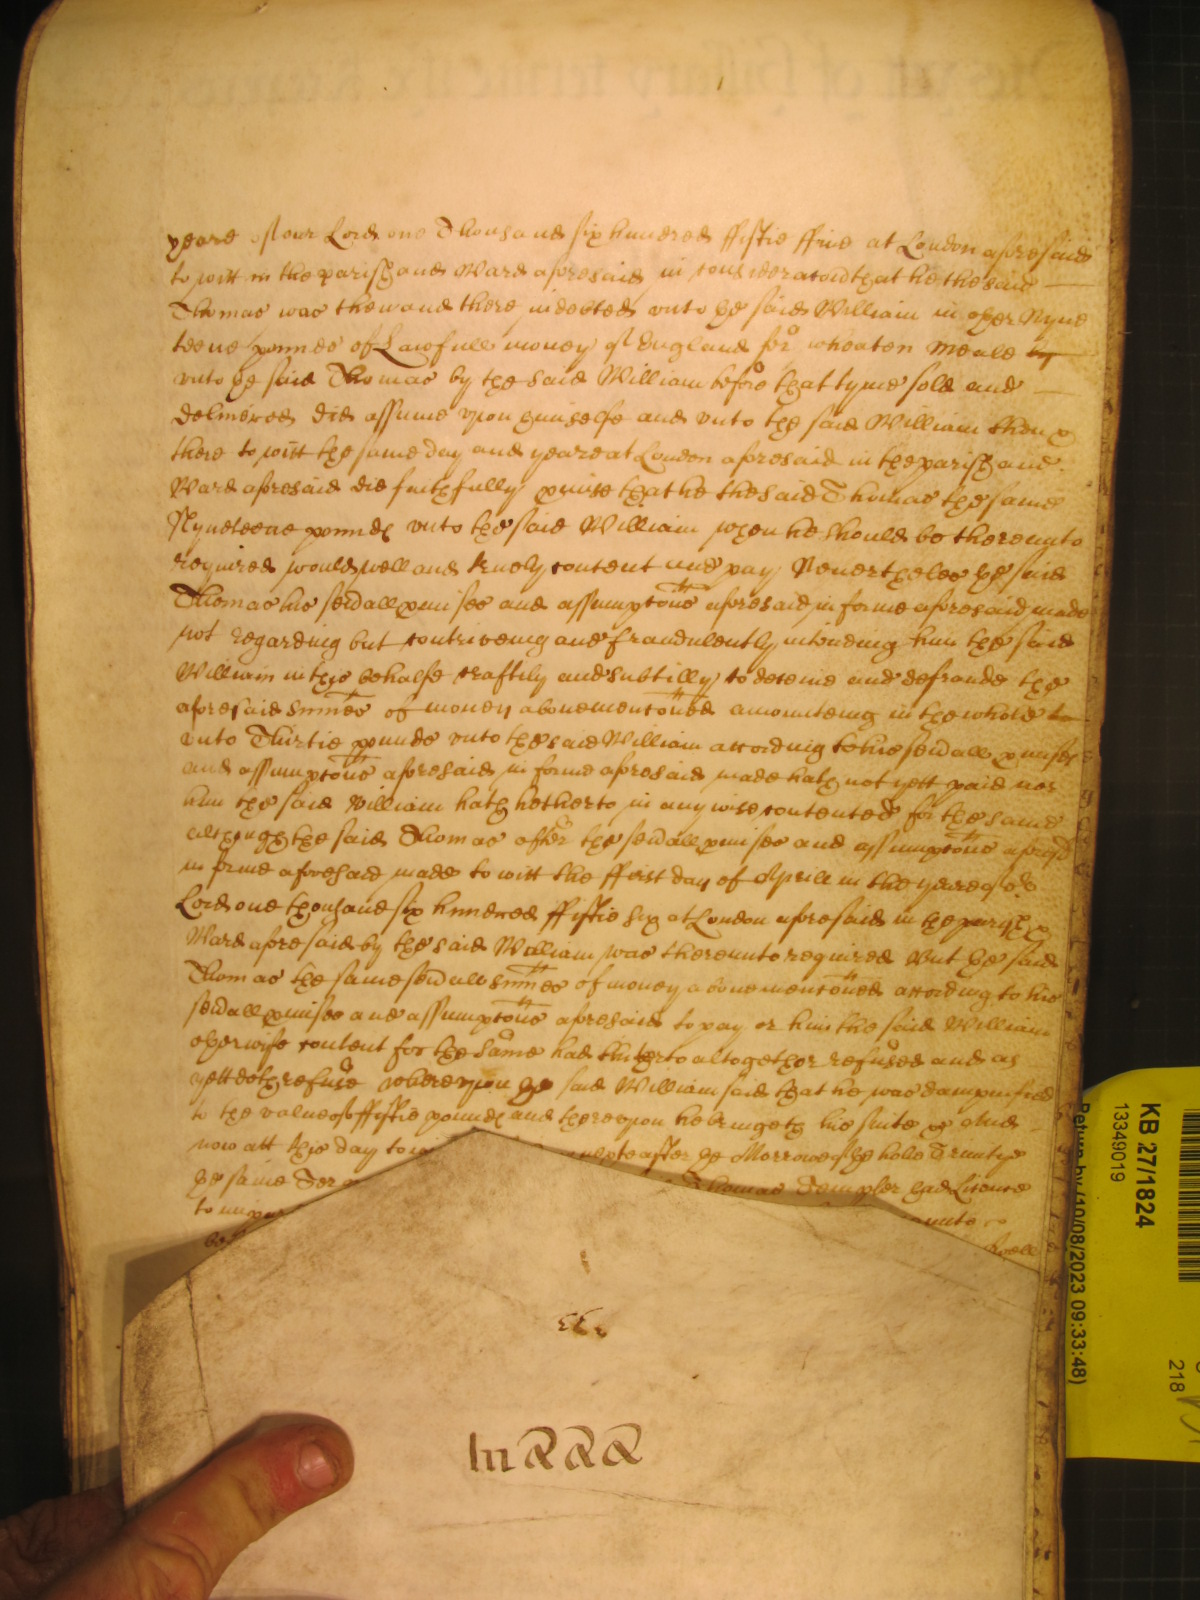 yeare of our Lord one Thousand six hundred ffiftie ffive at London aforesaid
to witt in the parish and Ward aforesaid in consideracon that he the said
Thomas was then and there indebted unto the said William in other Nyne
teene pounds of Lawfull money of England for wheaten Meale by
unto the said Thomas by the said William before that tyme sold and
delivered did assume upon himselfe and unto the said William then &
there to witt the same day and yeare at London aforesaid in the parish and
Ward aforesaid did faithfully pmise that he the said Thomas the same
Nyneteene pounds unto the said William when he should be thereunto
required would well and truely content and pay Nevertheles the said
Thomas his sevall pmises and assumpcons aforesaid in forme aforesaid made
not regarding but contriveing and fraudulently intending him the said
William in this behalfe craftily and subtilly to deceive and defraude the
aforesaid summes of money abovemenconed amounteing in the whole to
unto Thirtie pounds unto the said William according to his sevall pmises
and assumpcons aforesaid in forme aforesaid made hath not yett paid nor
him the said William hath hetherto in any wise contented for the same
although the said Thomas after the sevall pmises and assumpcons aforesd
in forme aforesaid made to witt the ffirst day of Aprill in the yeare of or
Lord one thousand six hundred ffiftie six at London aforesaid in the parish &
Ward aforesaid by the said William was thereunto required But the said
Thomas the same sevall summes of money abovemenconed according to his
sevall pmises and assumpcons aforesaid to pay or him the said William
otherwise content for the same hath hitherto altogether refused and as
yett doth refuse whereupon the said William said that he was dampnified
to the value of ffiftie pounds and thereupon he bringeth his suite &c And
now att this day to next after the Morrowe of the holie Trinitye
the same Ter Thomas Templer had Licence
to unto
KB 27/1824
13349019
Return by (10/08/2023 09:33:48)
218